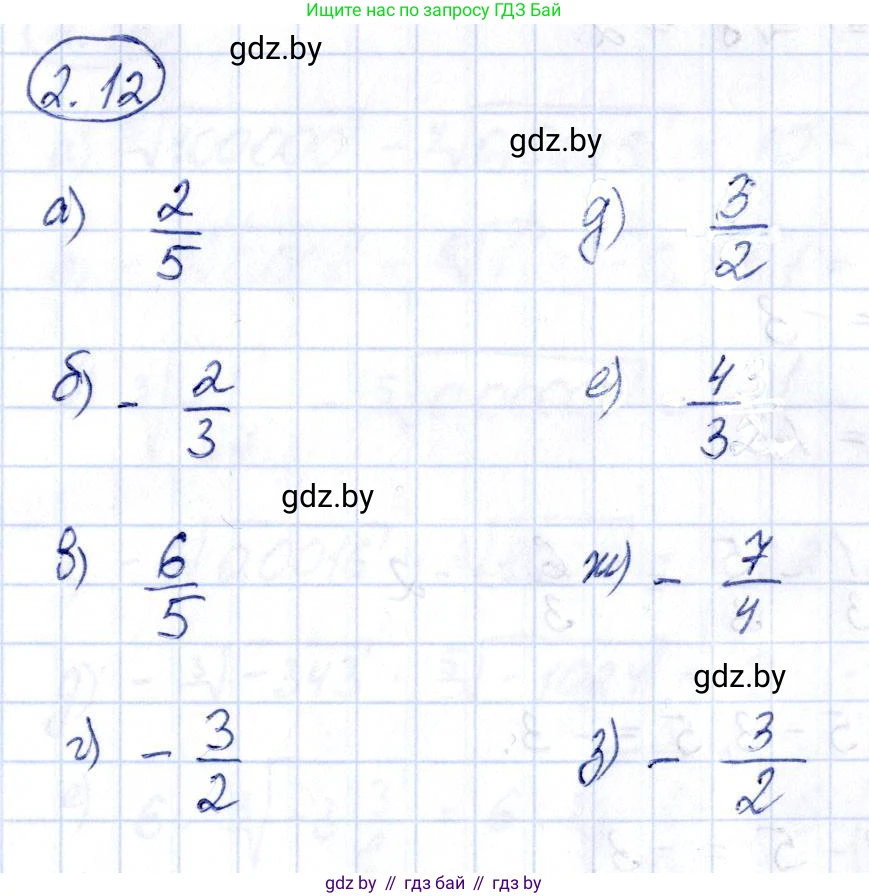 Ищите нас по запросу ГДЗ Бай
gdz.by
2.12
gdz.by
а) 2/5
д) 3/2
б) - 2/3
е) 4/3
gdz.by
в) 6/5
ж) - 7/4
gdz.by
г) - 3/2
з) - 3/2
gdz.by // гдз бай // gdz.by